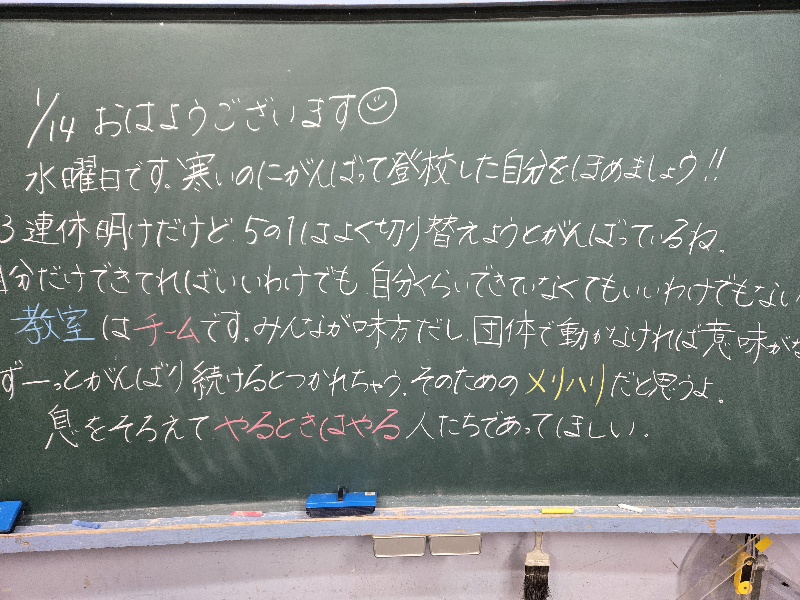 1/14 おはようございます☺
水曜日です。寒いのにがんばって登校した自分をほめましょう!!
3連休明けだけど、5の1はよく切り替えようとがんばっているね。
自分だけできてればいいわけでも、自分くらいできていなくてもいいわけでもない
教室はチームです。みんなが味方だし、団体で動かなければ意味がな
ずーっとがんばり続けるとつかれちゃう。そのためのメリハリだと思うよ。
息をそろえてやるときはやる人たちであってほしい。